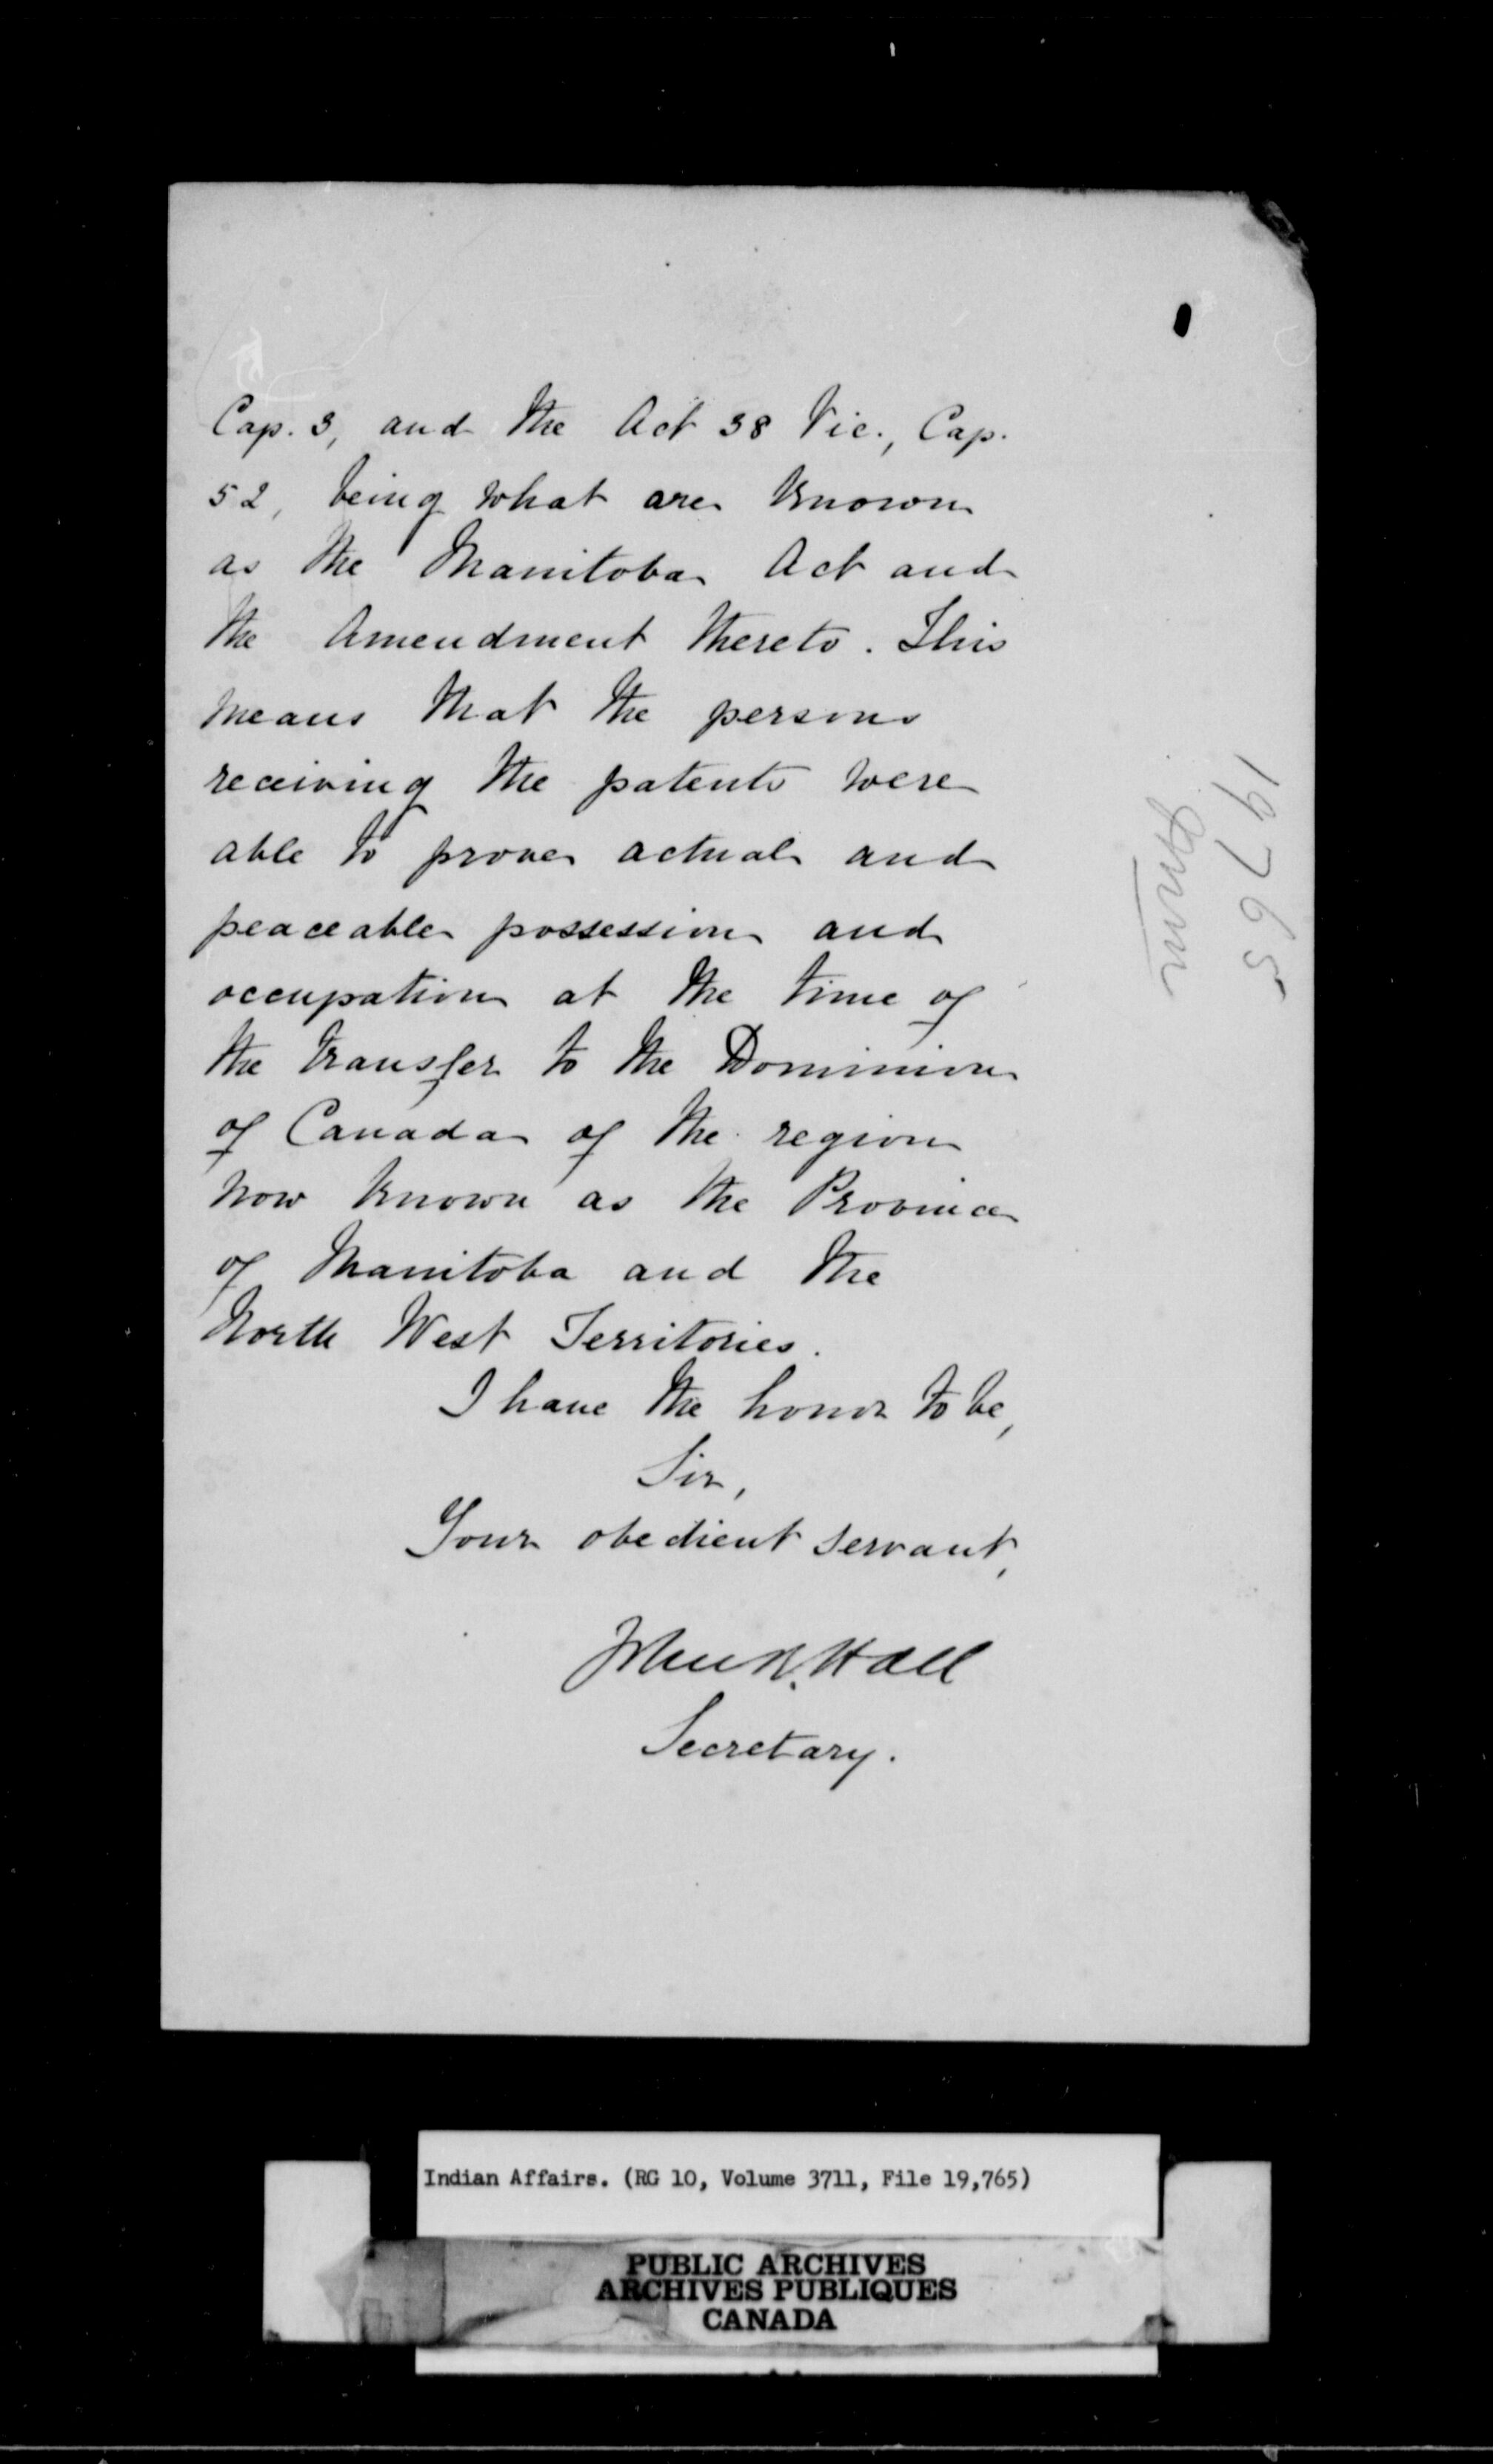 Cap. 3, and the Act 38 Vic., Cap.
52, being what are known
as the Manitoba Act and
the Amendment thereto. This
means that the persons
receiving the patents were
able to prove actual and
peaceable possession and
occupation at the time of
the transfer to the Dominion
of Canada of the region
now known as the Province
of Manitoba and the
North West Territories.
I have the honor to be,
Sir,
Your obedient servant,
John R. Hall
Secretary.
19765
Indian Affairs. (RG 10, Volume 3711, File 19,765)
PUBLIC ARCHIVES
ARCHIVES PUBLIQUES
CANADA